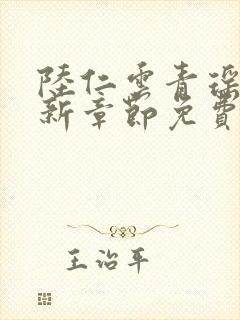 陸仁雲青瑤
新章節免費
王治平